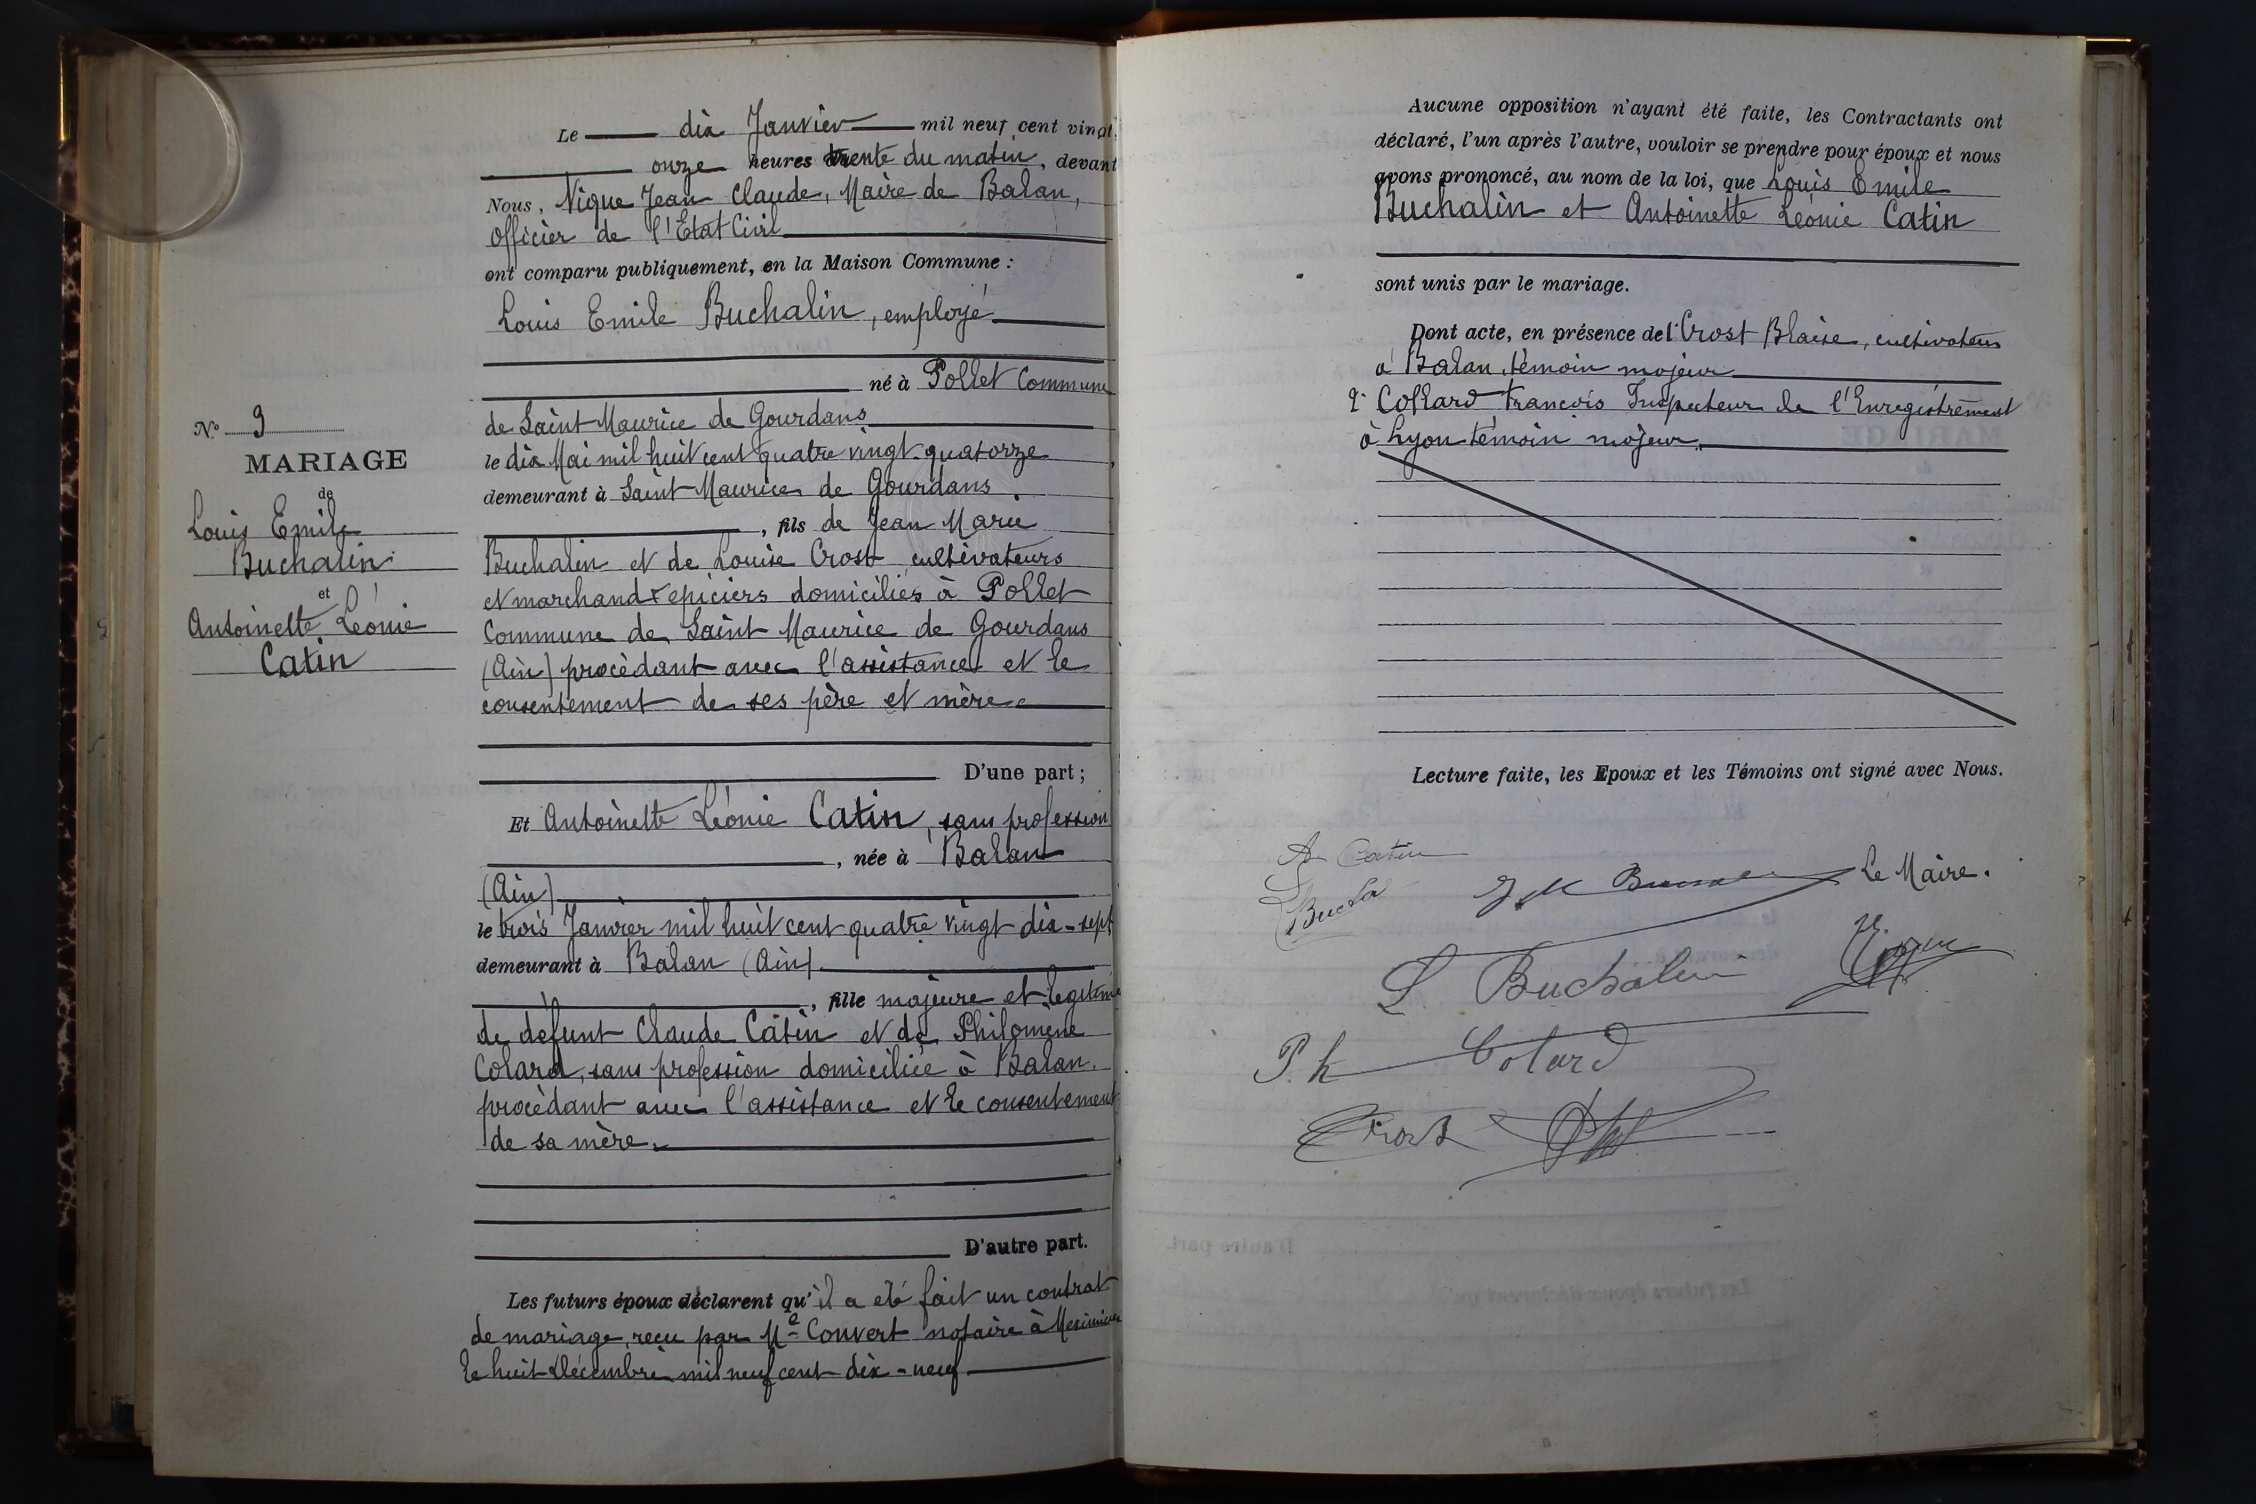 Le dix Janvier mil neuf cent vingt
onze heures trente du matin, devant
Nous, Nique Jean Claude, Maire de Balan,
officier de l'Etat Civil
ont comparu publiquement, en la Maison Commune :
Louis Emile Buchalin, employé
né à Pollet Commune
de Saint Maurice de Gourdans
le dix Mai mil huit cent quatre vingt-quatorze
demeurant à Saint Maurice de Gourdans
, fils de Jean Marie
Buchalin et de Louise Crost cultivateurs
et marchands épiciers domiciliés à Pollet
Commune de Saint Maurice de Gourdans
(Ain) procèdant avec l'assistance et le
consentement de ses père et mère
D'une part ;
Et Antoinette Léonie Catin, sans profession
, née à Balan
(Ain)
le trois Janvier mil huit cent quatre vingt dix-sept
demeurant à Balan (Ain)
, fille majeure et légitime
de défunt Claude Catin et de Philomène
Colard, sans profession domiciliée à Balan.
procèdant avec l'assistance et le consentement
de sa mère.
D'autre part.
Les futurs époux déclarent qu'il a été fait un contrat
de mariage, reçu par Me Convert notaire à
le huit Décembre mil neuf cent dix-neuf
No 3
MARIAGE
de
Louis Emile
Buchalin
et
Antoinette Léonie
Catin
Aucune opposition n'ayant été faite, les Contractants ont
déclaré, l'un après l'autre, vouloir se prendre pour époux et nous
avons prononcé, au nom de la loi, que Louis Emile
Buchalin et Antoinette Léonie Catin
sont unis par le mariage.
Dont acte, en présence de 1° Crost Blaise, cultivateur
à Balan témoin majeur
2° Collard francois Inspecteur de l'Enregistrement
à Lyon témoin majeur.
Lecture faite, les Epoux et les Témoins ont signé avec Nous.
A Catin
Le Maire.
L Buchalin
P.h Colard
Crost